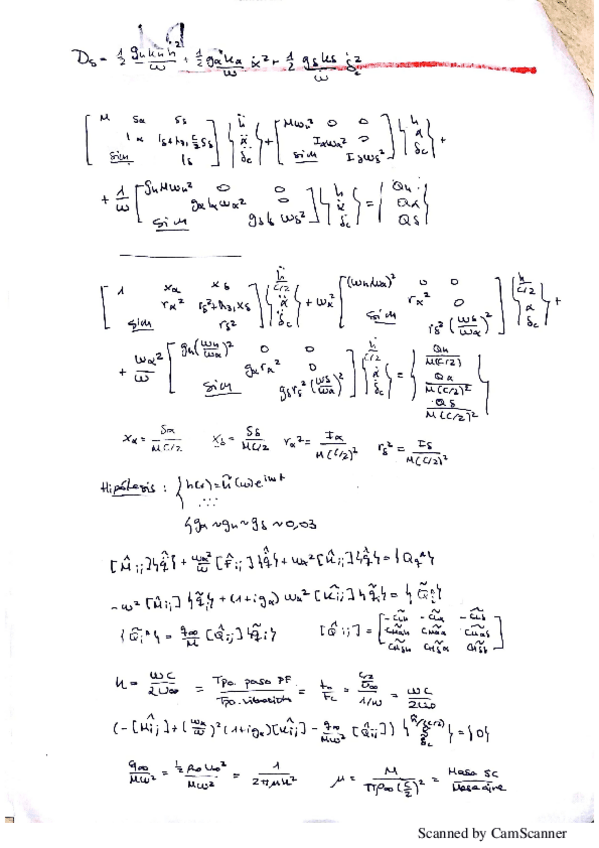 D_δ = 1/2 g_h k_h ḣ²/ω + 1/2 g_α k_α/ω α̇² + 1/2 g_δ k_δ/ω δ̇_c²
[M S_α S_δ; I_α I_δ+A_3,C/2 S_δ; Sim I_δ] {ḧ; α̈; δ̈_c} + [Mω_h² 0 0; I_αω_α² 0; Sim I_δω_δ²] {h; α; δ_c} +
+ 1/ω [g_h Mω_h² 0 0; g_α I_α ω_α² 0; Sim g_δ I_δ ω_δ²] {ḣ; α̇; δ̇_c} = {Q_h; Q_α; Q_δ}
[1 x_α x_δ; r_α² r_δ²+A_3,x_δ; Sim r_δ²] {ḧ/C/2; α̈; δ̈_c} + ω_α² [(ω_h/ω_α)² 0 0; r_α² 0; Sim r_δ² (ω_δ/ω_α)²] {h/C/2; α; δ_c} +
+ ω_α²/ω [g_h(ω_h/ω_α)² 0 0; g_α r_α² 0; Sim g_δ r_δ² (ω_δ/ω_α)²] {ḣ/C/2; α̇; δ̇_c} = {Q_h/M(C/2); Q_α/M(C/2)²; Q_δ/M(C/2)²}
x_α = S_α/MC/2 x_δ = S_δ/MC/2 r_α² = I_α/M(C/2)² r_δ² = I_δ/M(C/2)²
Hipótesis : { h(t) = h̃(ω)e^{iωt}
∴
{ g_α ~ g_h ~ g_δ ~ 0,03
[M̂_ij]{q̈} + ω_α²/ω [F̂_ij]{q̇} + ω_α² [K̂_ij]{q̂} = {Q_q^}
-ω² [M̂_ij]{q̃_i} + (1+ig_α) ω_α² [K̂_ij]{q̃_i} = {Q̃_i}
{Q̃_i^} = q∞/M [Q̂_ij]{q̃_i} [Q̂_ij] = [-C̃_lh -C̃_lα -C̃_lδ; C̃_mαh C̃_mαα C̃_mαδ; C̃_mδh C̃_mδα C̃_mδδ]
k = ωC/2U∞ = Tpo. paso PF/Tpo. vibración = t_o/F_c = C/2/U∞/1/ω = ωC/2U∞
(-[M̂_ij] + (ω_α/ω)² (1+ig_α)[K̂_ij] - q∞/Mω² [Q̂_ij]) {h̃/(C/2); α̃; δ̃_c} = {0}
q∞/Mω² = 1/2 ρ∞U∞²/Mω² = 1/2πμk² μ = M/πρ∞(C/2)² = Masa SC/Masa aire
Scanned by CamScanner